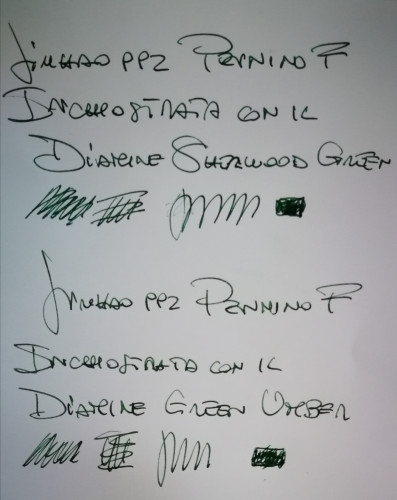 Jinhao 992 Pennino F
Inchiostrata con il
Diamine Sherwood Green
Jinhao 992 Pennino F
Inchiostrata con il
Diamine Green Umber